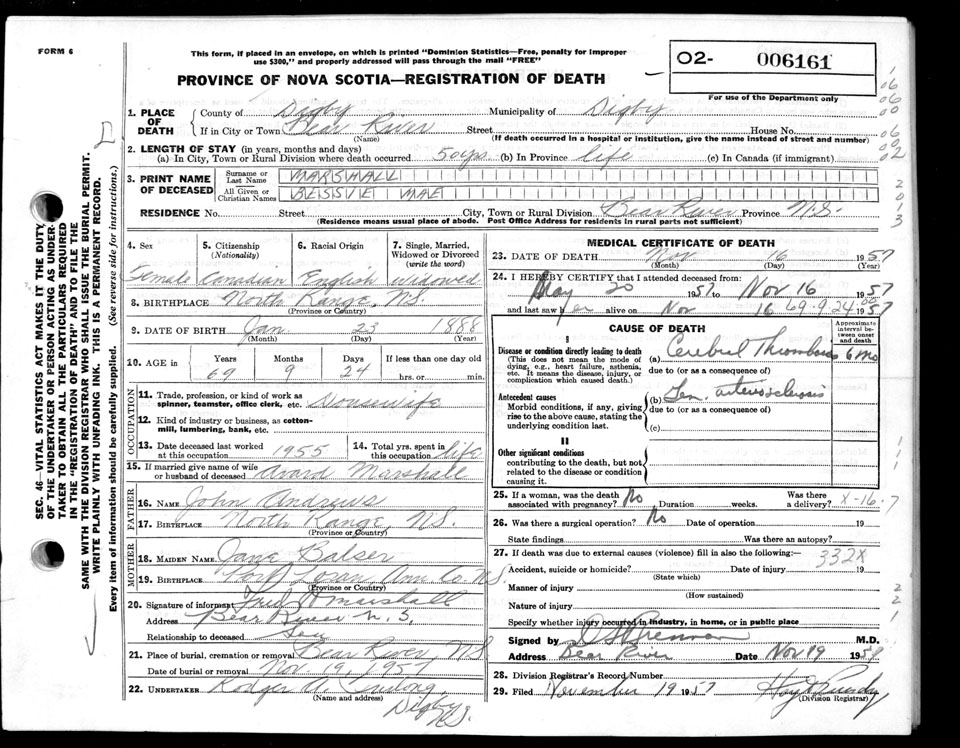 FORM 6
This form, if placed in an envelope, on which is printed "Dominion Statistics—Free, penalty for improper
use $300," and properly addressed will pass through the mail "FREE"
PROVINCE OF NOVA SCOTIA—REGISTRATION OF DEATH
O2- 006161
For use of the Department only
1. PLACE OF DEATH
County of Digby Municipality of Digby
If in City or Town Bear River Street House No.
(Name) (If death occurred in a hospital or institution, give the name instead of street and number)
2. LENGTH OF STAY (in years, months and days)
(a) In City, Town or Rural Division where death occurred 50 yrs (b) In Province life (c) In Canada (if immigrant)
3. PRINT NAME OF DECEASED
Surname or Last Name MARSHALL
All Given or Christian Names BESSIE MAE
RESIDENCE No. Street City, Town or Rural Division Bear River Province N.S.
(Residence means usual place of abode. Post Office Address for residents in rural parts not sufficient)
4. Sex Female
5. Citizenship (Nationality) Canadian
6. Racial Origin English
7. Single, Married, Widowed or Divorced (write the word) Widowed
8. BIRTHPLACE North Range, N.S.
(Province or Country)
9. DATE OF BIRTH Jan 23 1888
(Month) (Day) (Year)
10. AGE in Years 69 Months 9 Days 24 If less than one day old hrs. or min.
OCCUPATION
11. Trade, profession, or kind of work as spinner, teamster, office clerk, etc. Housewife
12. Kind of industry or business, as cotton-mill, lumbering, bank, etc.
13. Date deceased last worked at this occupation 1955
14. Total yrs. spent in this occupation life
15. If married give name of wife or husband of deceased Avard Marshall
FATHER
16. NAME John Andrews
17. BIRTHPLACE North Range, N.S.
(Province or Country)
MOTHER
18. MAIDEN NAME Jane Balser
19. BIRTHPLACE Port Lorne, Ann Co. N.S.
(Province or Country)
20. Signature of informant Fred Marshall
Address Bear River N.S.
Relationship to deceased Son
21. Place of burial, cremation or removal Bear River, N.S.
Date of burial or removal Nov. 19, 1957
22. UNDERTAKER Rodger A.
(Name and address) Digby N.S.
MEDICAL CERTIFICATE OF DEATH
23. DATE OF DEATH Nov 16 1957
(Month) (Day) (Year)
24. I HEREBY CERTIFY that I attended deceased from
May 20 1957 to Nov 16 1957
and last saw her alive on Nov 16 1957
69-9-24
CAUSE OF DEATH
Approximate interval between onset and death
I
Disease or condition directly leading to death
(This does not mean the mode of dying, e.g., heart failure, asthenia, etc. It means the disease, injury, or complication which caused death.)
(a) Cerebral Thrombosis 6 mo
due to (or as a consequence of)
Antecedent causes
Morbid conditions, if any, giving rise to the above cause, stating the underlying condition last.
(b) Gen. arteriosclerosis
due to (or as a consequence of)
(c)
II
Other significant conditions
contributing to the death, but not related to the disease or condition causing it.
25. If a woman, was the death associated with pregnancy? No Duration weeks. Was there a delivery?
X-16-7
26. Was there a surgical operation? No Date of operation 19
State findings Was there an autopsy?
27. If death was due to external causes (violence) fill in also the following:—
332X
Accident, suicide or homicide? Date of injury 19
(State which)
Manner of injury
(How sustained)
Nature of injury
Specify whether injury occurred in industry, in home, or in public place
Signed by Brennan M.D.
Address Bear River Date Nov 19 195
28. Division Registrar's Record Number
29. Filed November 19 1957
(Division Registrar)
SEC. 46—VITAL STATISTICS ACT MAKES IT THE DUTY,
OF THE UNDERTAKER OR PERSON ACTING AS UNDER-
TAKER TO OBTAIN ALL THE PARTICULARS REQUIRED
IN THE "REGISTRATION OF DEATH" AND TO FILE THE
SAME WITH THE DIVISION REGISTRAR WHO SHALL ISSUE THE BURIAL PERMIT.
WRITE PLAINLY WITH UNFADING INK. THIS IS A PERMANENT RECORD.
Every item of information should be carefully supplied. (See reverse side for instructions.)